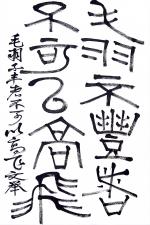 毛羽不豐者
不可以高飛
毛羽不丰者不可以高飞